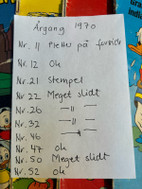 Årgang 1970
Nr. 11 Pletter på forside
Nr. 12 Ok
Nr. 21 Stempel
Nr. 22 Meget slidt
Nr. 26 —"—
Nr. 32 —"—
Nr. 46 —"—
Nr. 47 ok
Nr. 50 Meget slidt
Nr. 52 ok